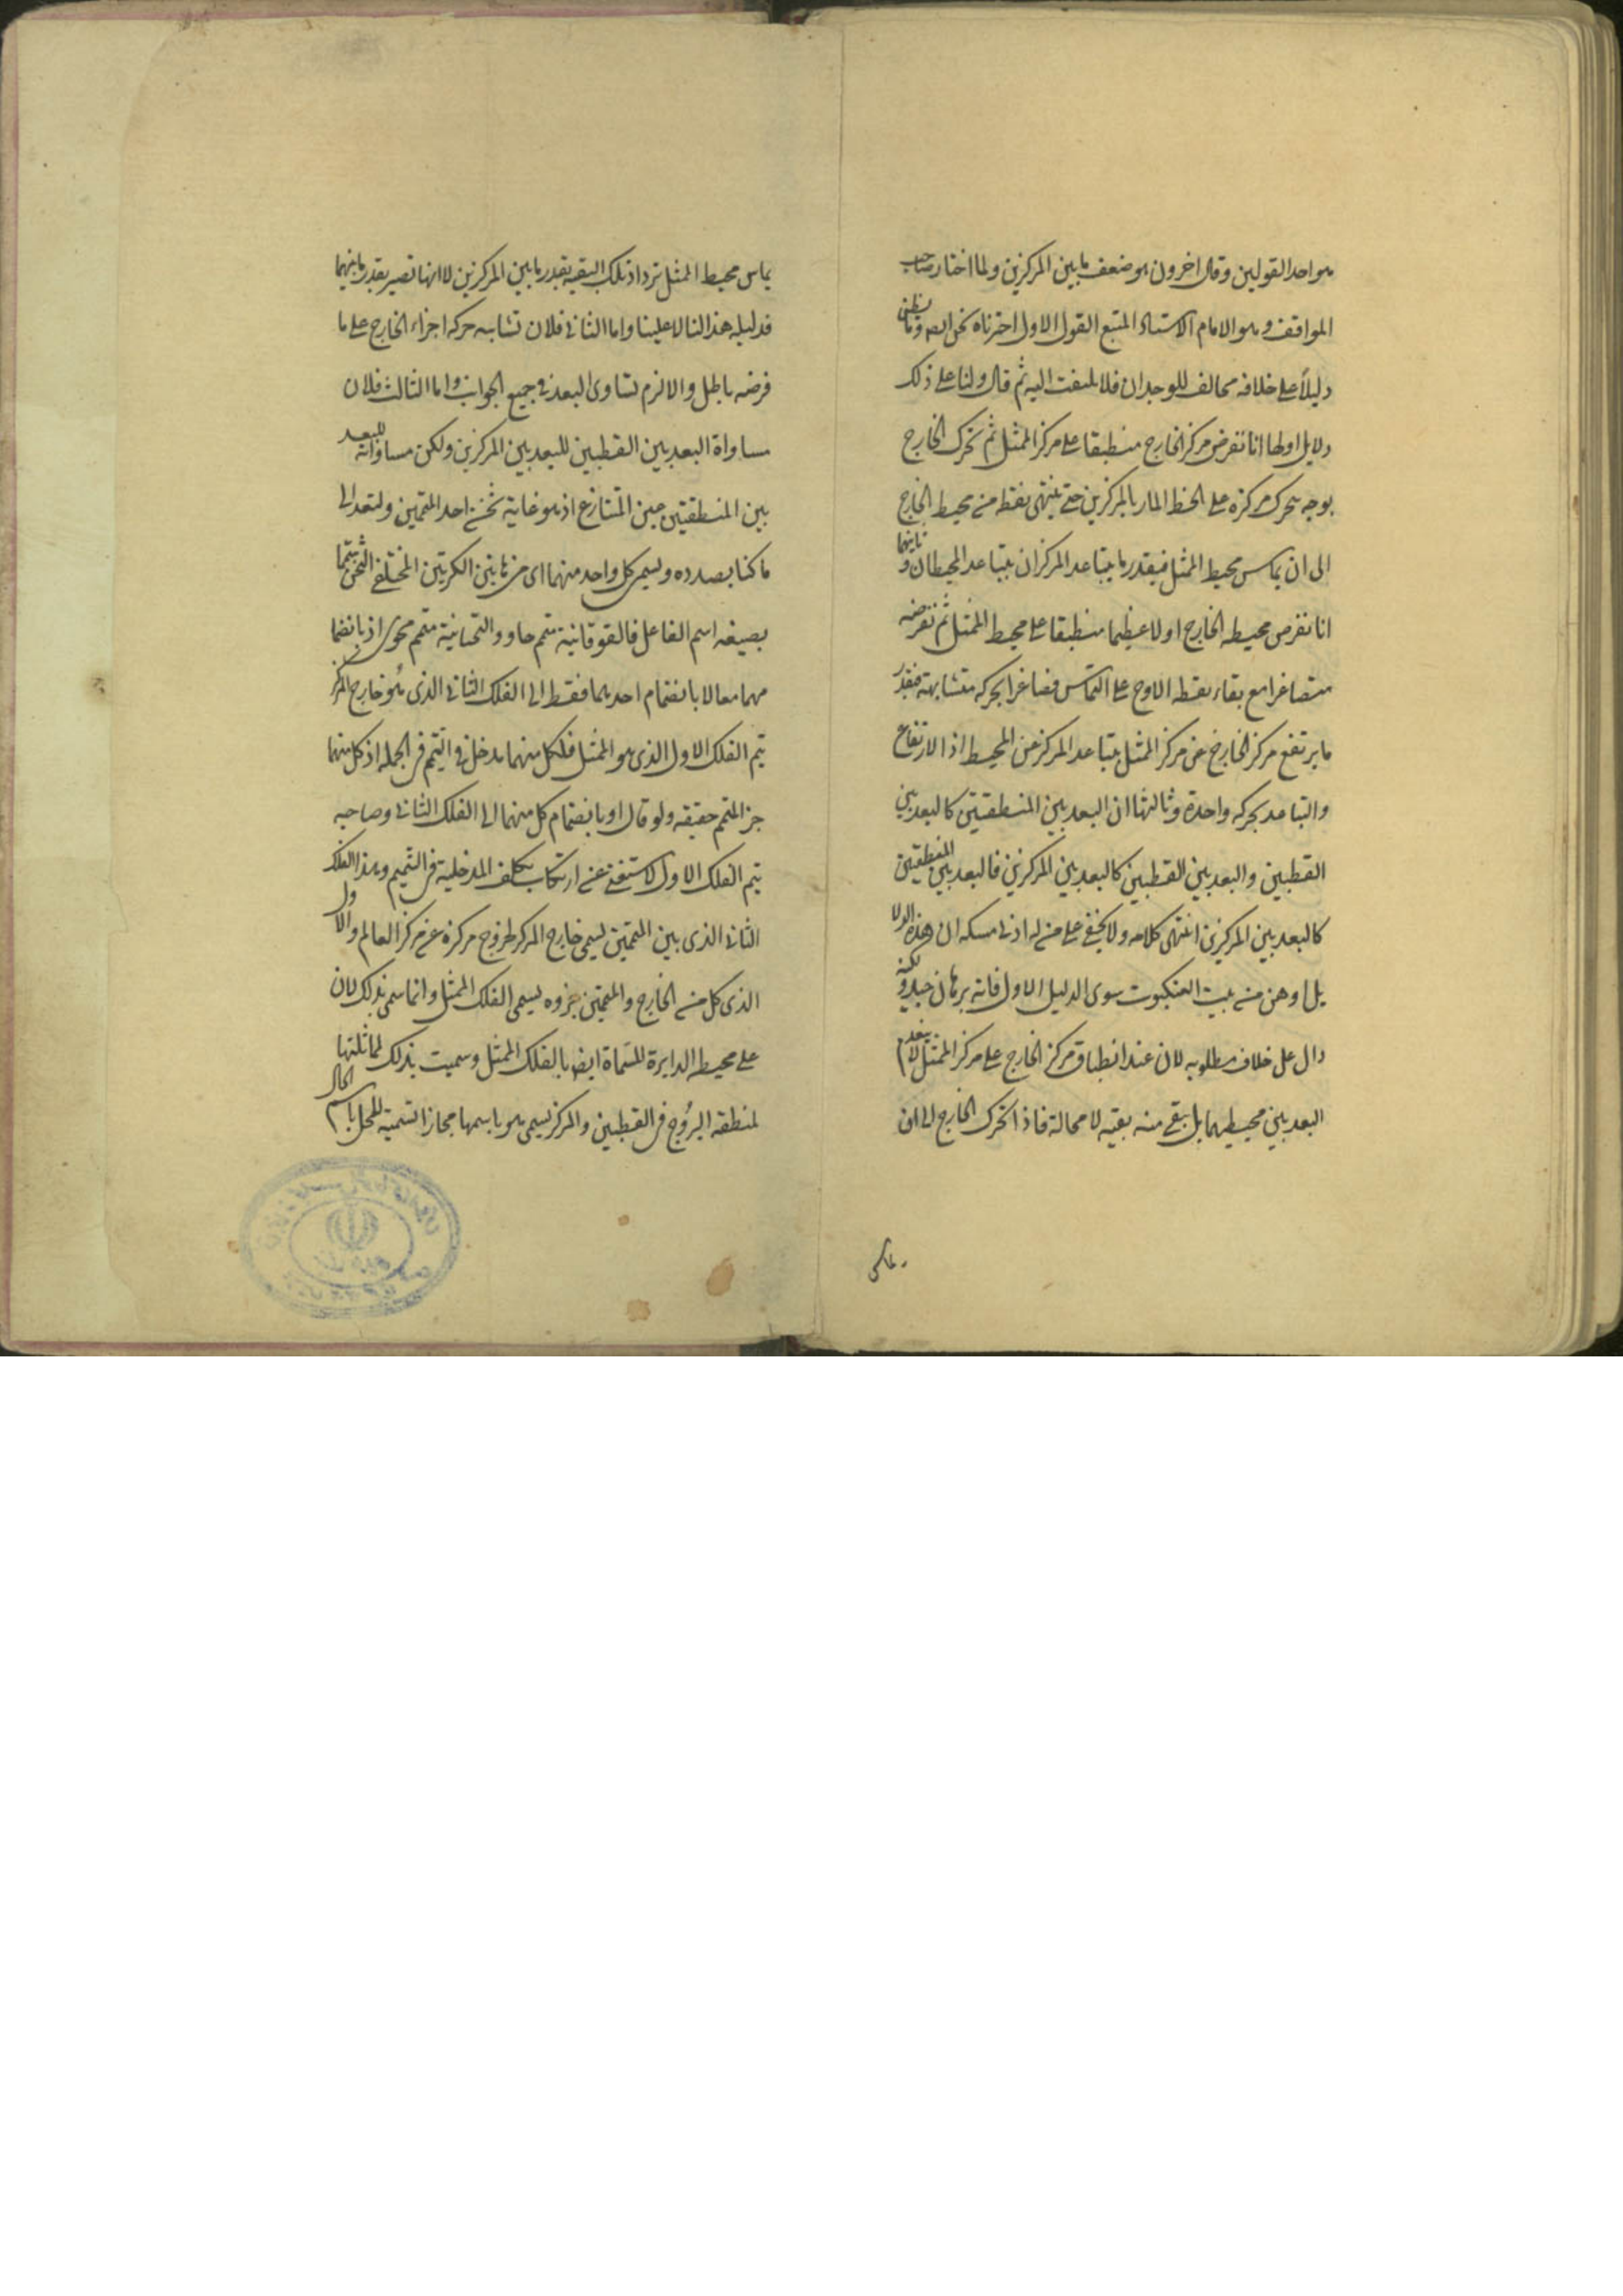 هو احد القولين وقال اخرون هو ضعف ما بين المركزين ولما اختار صاحب
المواقف وهو الامام الاستاد المتبع القول الاول اخترناه نحن ايضا وما يظن
دليلاً على خلافه مخالف للوجدان فلا يلتفت اليه ثم قال ولنا على ذلك
دلايل اولها انا نفرض مركز الخارج منطبقا على مركز الممثل ثم نحرك الخارج
بوجه يتحرك مركزه على الخط المار بالمركزين حتى ينتهى نقطه من محيط الخارج
الى ان يماس محيط الممثل فبقدر ما يتباعد المركزان يتباعد المحيطان وثانيهما
انا نفرض محيط الخارج اولا عظيما منطبقا على محيط الممثل ثم نفرضه
متصاغرا مع بقاء نقطه الاوج على التماس تصاغرا بحركه متشابهة فبقدر
ما يرتفع مركز الخارج عن مركز الممثل يتباعد المركز عن المحيط اذ الارتفاع
والتباعد بحركه واحدة وثالثها ان البعد بين المنطقتين كالبعد بين
القطبين والبعد بين القطبين كالبعد بين المركزين فالبعد بين المنطقتين
كالبعد بين المركزين انتهى كلامه ولا يخفى على من له ادنى مسكه ان هذه الدلا
يل اوهن من بيت العنكبوت سوى الدليل الاول فانه برهان جيد ولكنه
دال على خلاف مطلوبه لان عند انطباق مركز الخارج على مركز الممثل لا ينعدم
البعد بين محيطيهما بل يبقى منه بقيه لا محالة فاذا تحرك الخارج الى ان
يماس
يماس محيط الممثل تزداد تلك البقيه بقدر ما بين المركزين لا انها تصير بقدر ما بينهما
فدليله هذا لنا لا علينا واما الثانى فلان تشابه حركه اجزاء الخارج على ما
فرضه باطل والا لزم تساوى البعد فى جميع الجوانب واما الثالث فلان
مساواة البعد بين القطبين للبعد بين المركزين ولكن مساواته للبعد
بين المنطقتين عين المتنازع اذ هو غاية ثخن احد المتممين ولنعد الى
ما كنا بصدده ويسمى كل واحد منهما اى من هاتين الكرتين المختلفتى الثخن متمما
بصيغه اسم الفاعل فالفوقانية متمم حاو والتحتانية متمم محوى اذ بانضما
مهما معا لا بانضمام احدهما فقط الى الفلك الثانى الذى هو خارج المركز
يتم الفلك الاول الذى هو الممثل فلكل منهما مدخل فى التتميم فى الجمله اذ كل منهما
جز المتمم حقيقه ولو قال او بانضمام كل منهما الى الفلك الثانى وصاحبه
يتم الفلك الاول لاستغنى عن ارتكاب تكلف المدخلية فى التتميم وهذا الفلك
الثانى الذى بين المتممين يسمى خارج المركز لخروج مركزه عن مركز العالم والاول
الذى كل من الخارج والمتممين جزوه يسمى الفلك الممثل وانما سمى بذلك لان
على محيطه الدايرة المسماة ايضا بالفلك الممثل وسميت بذلك لمماثلتها
لمنطقه البروج فى القطبين والمركز يسمى هو باسمها مجازا تسمية للمحل باسم الحال